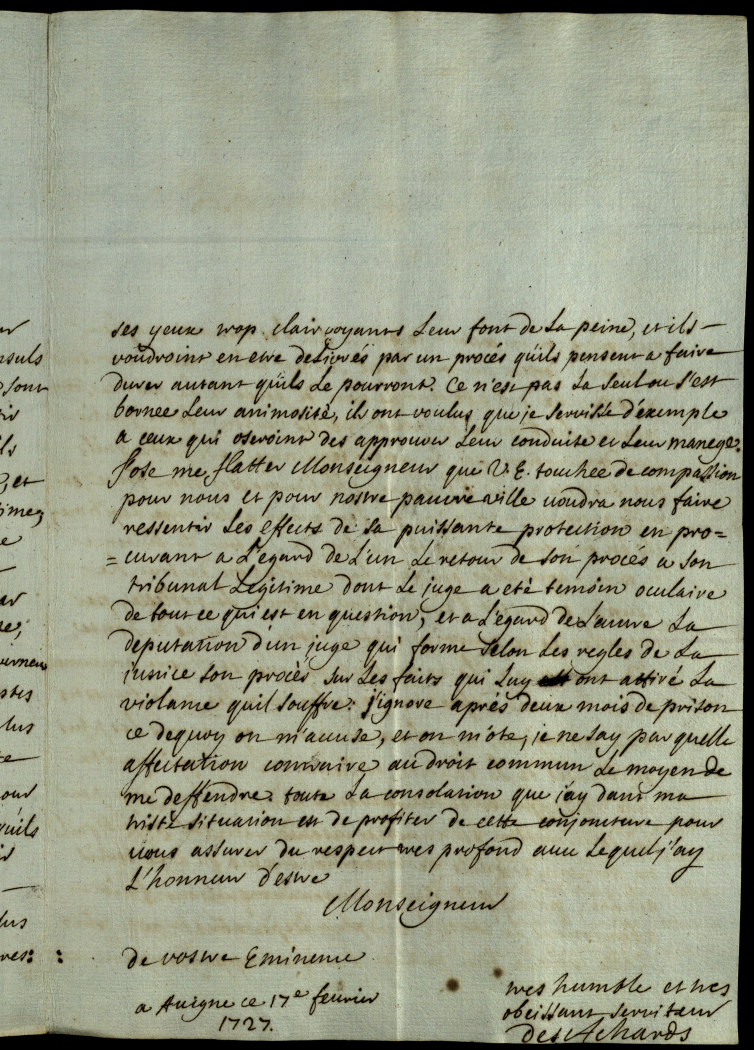 ses yeux trop clairvoyants leur font de la peine, et ils
voudroint en etre delivrés par un procés qu'ils pensent a faire
durer autant qu'ils le pourront. Ce n'est pas la seul ou s'est
bornée leur animosité, ils ont voulus que je servisse d'exemple
a ceux qui oseroint des approuver leur conduite et leur manege.
J'ose me flatter Monseigneur que V. E. touchée de compassion
pour nous et pour nostre pauvre ville voudra nous faire
ressentir les effects de sa puissante protection en pro=
=curant a l'egard de l'un le retour de son procés a son
tribunal legitime dont le juge a eté temoin oculaire
de tout ce qui est en question, et a l'egard de l'autre la
deputation d'un juge qui forme selon les regles de la
justice son procés sur les faits qui luy ont attiré la
violance quil souffre. j'ignore aprés deux mois de prison
ce dequoy on m'accuse, et on m'ote, je ne say par quelle
affectation contraire au droit commun le moyen de
me deffendre. toute la consolation que j'ay dans ma
triste situation est de profiter de cette conjoncture pour
vous assurer du respect tres profond avec lequel j'ay
l'honneur d'estre
Monseigneur
de vostre Eminence
a Avigne ce 17e fevrier
1727.
tres humble et tres
obeissant serviteur
des Achards
ur
nsuls
sont
tir
ils
, et
time,
e
ar
re,
uverneur
stes
lus
te
our
qu'ils
ir
lus
res: